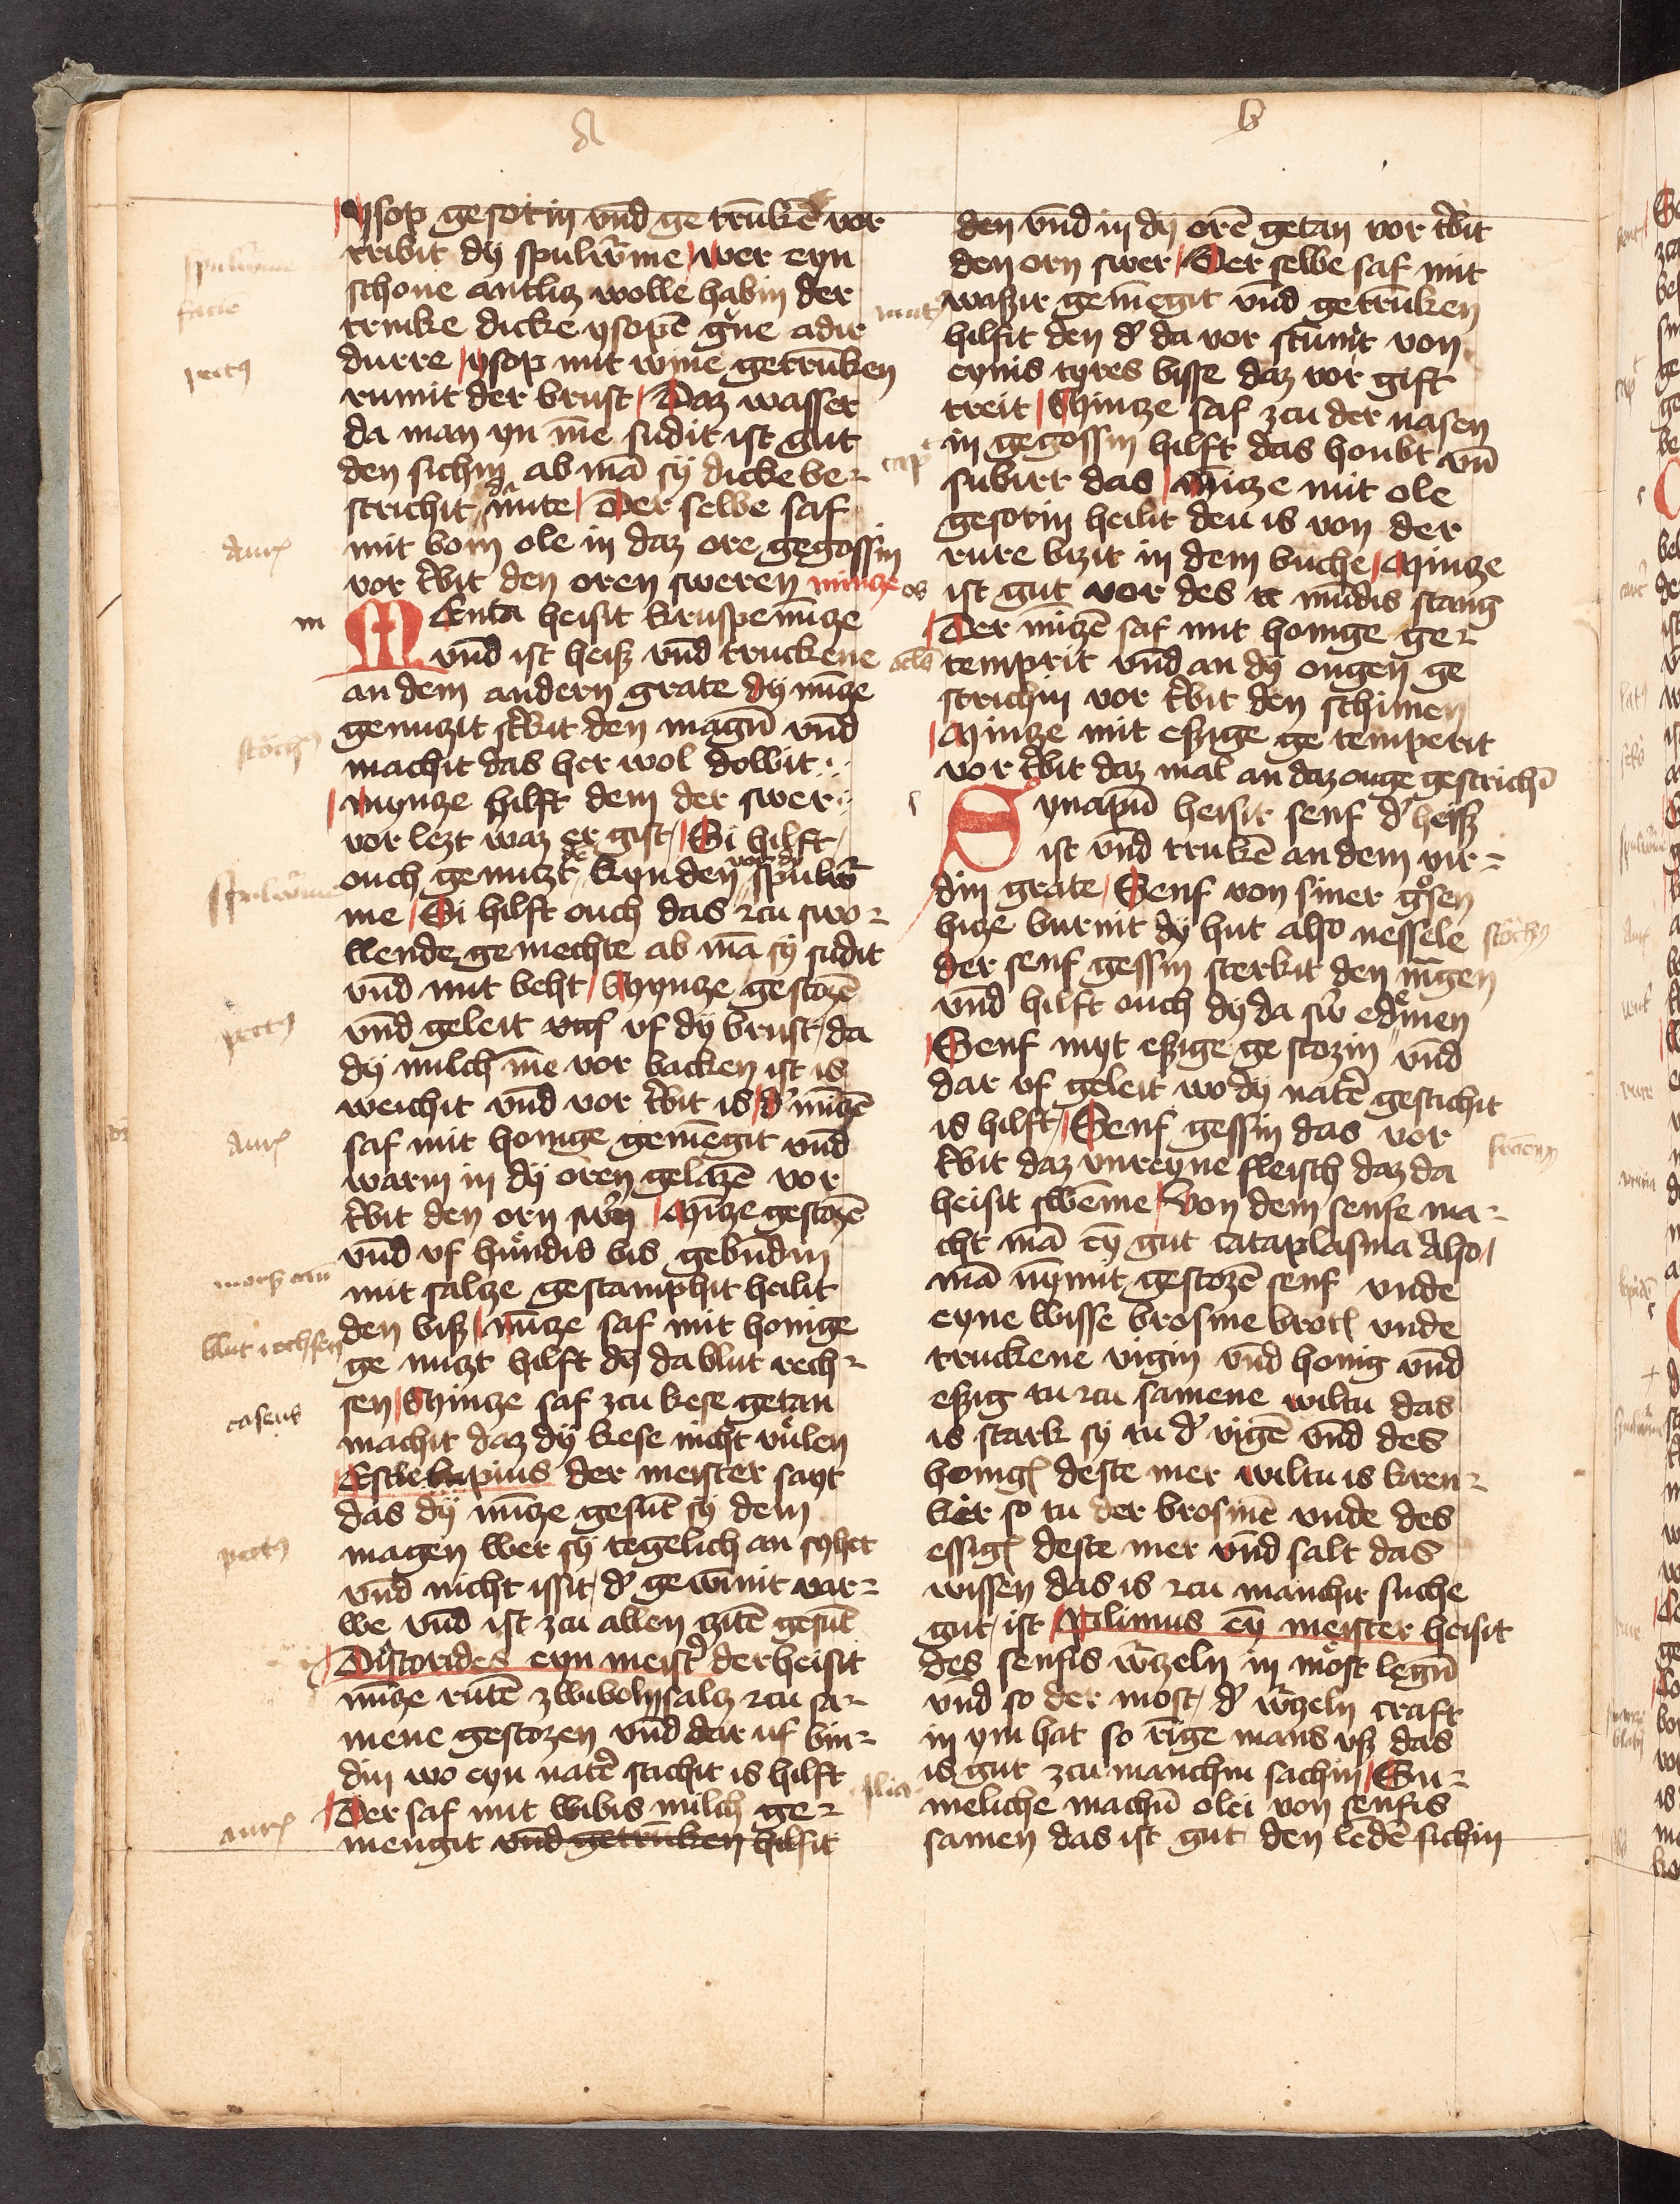 a
ysop gesotin vnd ge trūkē vor
tribit dy spulworme wer eyn
schone antliz wolle habin der
trinke dicke ysopē grne adir
durre ysop mit wine getrūken
rumit der brust Daz wasser
da man yn īne sudit ist gut
den sichin ab mā sy dicke be-
strichit da mite Der selbe saf
mit bom ole in daz ore gegossin
vor tribit den oren sweren minze
Menta heisit kruspe mīze
vnd ist heisz vnd truckene
an dem andern grate dy mīze
genutzit sterkit den magū vnd
machit das her wol dowit
mynze hilft dem der swer
vor lezt waz er gist Si hilft
ouch genutzt den kynden vor dy spulwor
me Si hilft ouch das zcu swo-
llende gemechte ab mā sy sudit
vnd mit beht Mynze gestozē
vnd geleit vf dy brust da
dy milch īne vor backen ist is
weichit vnd vor tribit is der mīzē
saf mit honige gemēgit vnd
warm in dy oren gelazē vor
tribit den orn swern Mīze gestozē
vnd vf hundis bis gebūdin
mit salcze gestamphit heilit
den bisz mīze saf mit honige
ge nutzt hilft dy da blut rech-
sen Minze saf zcu kese getan
machit daz dy kese nicht vulen
Esculapius der meister sayt
das dy mīze gesūt sy dem
magen wer sy tegelich an syhet
vnd nicht issit der gewīnit var-
we vnd ist zcu allen zitē gesūt
Diſcorides eyn meister der heisit
mīze rutē zwiboln salz zcu sa-
mene gestozen vnd dar uf bin-
din wo eyn nater stichit is hilft
Der saf mit wibis milch ge-
mengit vnd getrūken hilfit
b
den vnd in dy orē getan vor tribit
den orn swer Der selbe saf mit
waszir gemēgit vnd getrūken
hilfit den der da vor stūmit von
eynis tyres bisse daz vor gift
treit Minze saf zcu der nasen
in gegossin hilft das houbt vn
subirt das Mīze mit ole
gesotin heilit den is von der
rure bizit in dem buche Minze
ist gut vor des mūdis stang
Der mīzē saf mit honige ge-
temprit vnd an dy ougen ge
strichin vor tribit den schimen
Minze mit eszige ge temperit
vor tribit daz mal an daz ouge gestrichī
Synapū heisit senf der heisz
ist vnd trukē an dem vir-
din grate Senf von siner grosen
hize burnit dy hut also nessele
der senf gessin sterkit den magen
vnd hilft ouch dy da swer edmen
Senf myt eszige ge stozin vnd
dar vf geleit wo dy nater gestichit
is hilft Senf gessin das vor
tribit daz vnreyne fleisch daz da
heisit swēme Von dem senfe ma-
cht mā ey gut cataplasma also
mā nymit gestozē senf vnde
eyne wisse brosme brotes vnde
truckene vigin vnd honig vnd
eszig tu zcu samene wiltu das
is stark sy tu der vigē vnd des
honiges deste mer wiltu is kren-
ker so tu der brosmē vnde des
essiges deste mer vnd salt das
wissen das is zcu manchir suche
gut ist Plinius ey meister heisit
des senfis worzeln in most legū
vnd so der most der worzeln craft
in ym hat so tinge mans vsz das
is gut zcu manchin sachin Su-
meliche machū olei von senfis
samen das ist gut den ledē sichin
spulwrme
facie
pectus
Aures
m
stōchus
spulwrme
pectus
Aures
blut rechsen
caseus
pectus
aures
cap
os
stōchus